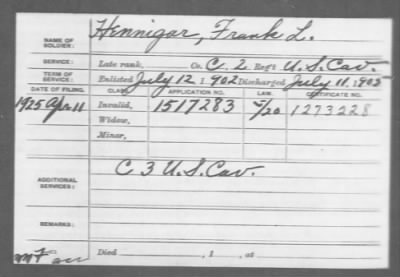 NAME OF SOLDIER: Hennigar, Frank L.
SERVICE: Late rank, Co. C, 2 Reg't U.S. Cav.
TERM OF SERVICE: Enlisted July 12, 1902 Discharged July 11, 1905
DATE OF FILING. CLASS. APPLICATION NO. LAW. CERTIFICATE NO.
1925 Apr 11 Invalid, 1517283 5/20 1273228
Widow,
Minor,
ADDITIONAL SERVICES: C 3 U.S. Cav.
REMARKS:
Died , 1 , at